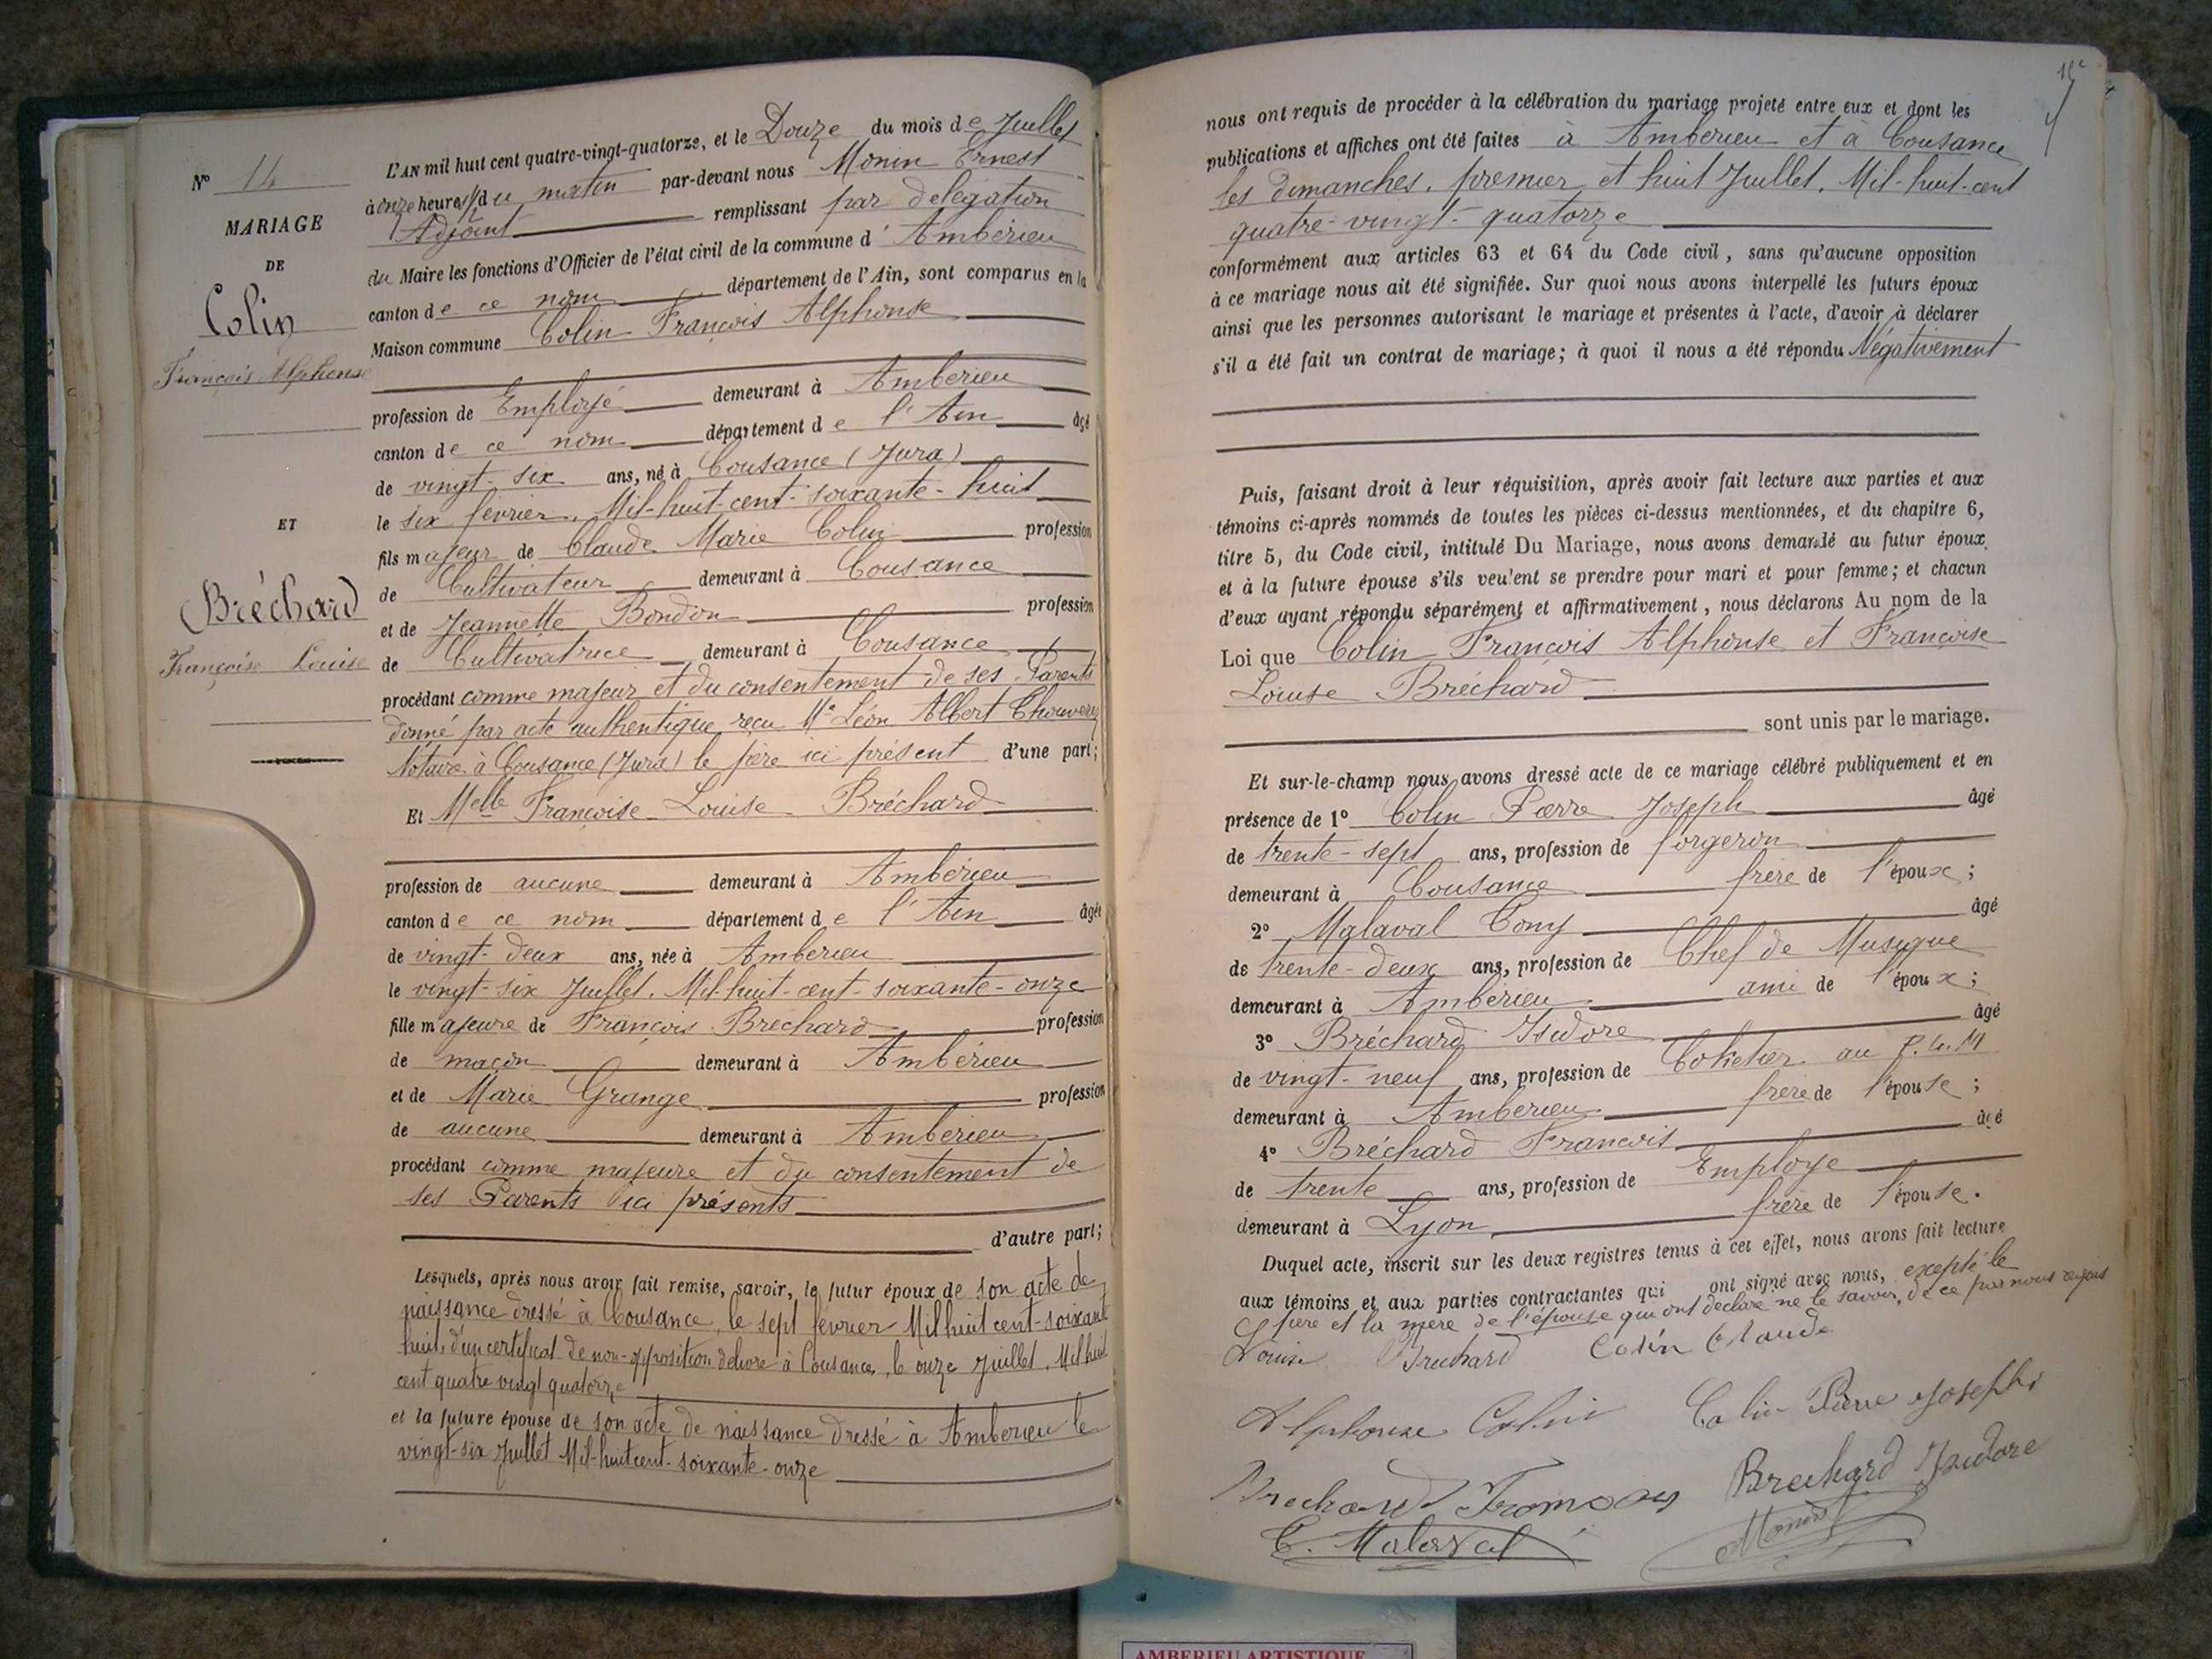 N° 14
MARIAGE
DE
Colin
François Alphonse
ET
Bréchard
Françoise Louise
L'AN mil huit cent quatre-vingt-quatorze, et le Douze du mois de Juillet
à onze heures du matin par-devant nous Monin Ernest
Adjoint remplissant par délégation
du Maire les fonctions d'Officier de l'état civil de la commune d'Ambérieu
canton de ce nom département de l'Ain, sont comparus en la
Maison commune Colin François Alphonse
profession de Employé demeurant à Ambérieu
canton de ce nom département de l'Ain âgé
de vingt-six ans, né à Cousance (Jura)
le six février, Mil-huit-cent-soixante-huit
fils majeur de Claude Marie Colin profession
de Cultivateur demeurant à Cousance
et de Jeannette Bondon profession
de Cultivatrice demeurant à Cousance
procédant comme majeur et du consentement de ses Parents
donné par acte authentique reçu Me Léon Albert
Notaire à Cousance (Jura) le père ici présent d'une part;
Et Melle Françoise Louise Bréchard
profession de aucune demeurant à Ambérieu
canton de ce nom département de l'Ain âgée
de vingt-deux ans, née à Ambérieu
le vingt-six Juillet, Mil-huit-cent-soixante-onze
fille majeure de François Bréchard profession
de maçon demeurant à Ambérieu
et de Marie Grange profession
de aucune demeurant à Ambérieu
procédant comme majeure et du consentement de
ses Parents ici présents
d'autre part;
Lesquels, après nous avoir fait remise, savoir, le futur époux de son acte de
naissance dressé à Cousance, le sept février Mil huit cent-soixante
huit, d'un certificat de non-opposition délivré à Cousance, le onze Juillet, Mil huit
cent quatre vingt quatorze
et la future épouse de son acte de naissance dressé à Ambérieu le
vingt-six Juillet Mil-huit cent-soixante-onze
nous ont requis de procéder à la célébration du mariage projeté entre eux et dont les
publications et affiches ont été faites à Ambérieu et à Cousance
les dimanches, premier et huit Juillet, Mil-huit-cent
quatre-vingt-quatorze
conformément aux articles 63 et 64 du Code civil, sans qu'aucune opposition
à ce mariage nous ait été signifiée. Sur quoi nous avons interpellé les futurs époux
ainsi que les personnes autorisant le mariage et présentes à l'acte, d'avoir à déclarer
s'il a été fait un contrat de mariage; à quoi il nous a été répondu Négativement
Puis, faisant droit à leur réquisition, après avoir fait lecture aux parties et aux
témoins ci-après nommés de toutes les pièces ci-dessus mentionnées, et du chapitre 6,
titre 5, du Code civil, intitulé Du Mariage, nous avons demandé au futur époux
et à la future épouse s'ils veulent se prendre pour mari et pour femme; et chacun
d'eux ayant répondu séparément et affirmativement, nous déclarons Au nom de la
Loi que Colin François Alphonse et Françoise
Louise Bréchard
sont unis par le mariage.
Et sur-le-champ nous avons dressé acte de ce mariage célébré publiquement et en
présence de 1° Colin Pierre Joseph âgé
de trente-sept ans, profession de forgeron
demeurant à Cousance frère de l'époux;
2° Malaval Tony âgé
de trente-deux ans, profession de Chef de Musique
demeurant à Ambérieu ami de l'époux;
3° Bréchard Isidore âgé
de vingt-neuf ans, profession de au P.L.M
demeurant à Ambérieu frère de l'épouse;
4° Bréchard François âgé
de trente ans, profession de Employé
demeurant à Lyon frère de l'épouse.
Duquel acte, inscrit sur les deux registres tenus à cet effet, nous avons fait lecture
aux témoins et aux parties contractantes qui ont signé avec nous, excepté le
père et la mère de l'épouse qui ont déclaré ne le savoir, de ce par nous requis
Louise Bréchard Colin Claude
Alphonse Colin Colin Pierre Joseph
Brechard François Brechard Isidore
C. Malaval Monin
AMBERIEU ARTISTIQUE